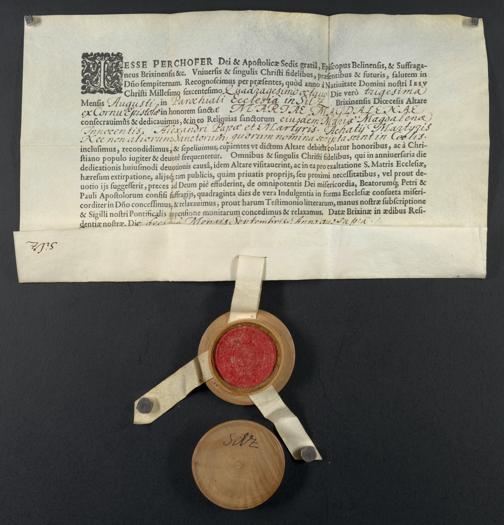 IESSE PERCHOFER Dei & Apostolicæ Sedis gratiâ, Episcopus Belinensis, & Suffraga-
neus Brixinensis &c. Vniversis & singulis Christi fidelibus, præsentibus & futuris, salutem in
Dño sempiternam. Recognoscimus per præsentes, quòd anno à Natiuitate Domini nostri IESV
Christi Millesimo sexcentesimo Quadragesimo Die verò vigesima
Mensis Augusti, in Parochiali Ecclesia in Silz Brixinensis Diœcesis Altare
ex Cornu Epistolæ in honorem sanctæ MARIAE MAGDALENAE
consecrauimus & dedicauimus, & in eo Reliquias sanctorum eiusdem Mariæ Magdalenæ
Innocentis, Alexandri Papæ et Martyris Achatij Martyris
sanctorum, quorum nomina scripta sint in Cœlis
inclusimus, recondidimus, & sepeliuimus, cupientes vt dictum Altare debitis colant honoribus, ac à Chri-
stiano populo iugiter & deuotè frequentetur. Omnibus & singulis Christi fidelibus, qui in anniuersario die
dedicationis huiusmodi deuotionis causâ, idem Altare visitauerint, ac in eo pro exaltatione S. Matris Ecclesiæ,
hæresum extirpatione, alijsque tum publicis, quàm priuatis proprijs, seu proximi necessitatibus, vel prout de-
uotio ijs suggesserit, preces ad Deum piè effuderint, de omnipotentis Dei misericordia, Beatorumque Petri &
Pauli Apostolorum consisi suffragijs, quadraginta dies de vera Indulgentia in forma Ecclesiæ consueta miseri-
corditer in Dño concessimus, & relaxauimus, prout harum Testimonio litterarum, manus nostræ subscriptione
& Sigilli nostri Pontificalis impensione munitarum concedimus & relaxamus. Datæ Brixinæ in ædibus Resi-
dentiæ nostræ. Die Mensis Septembris Anno
Silz
Silz